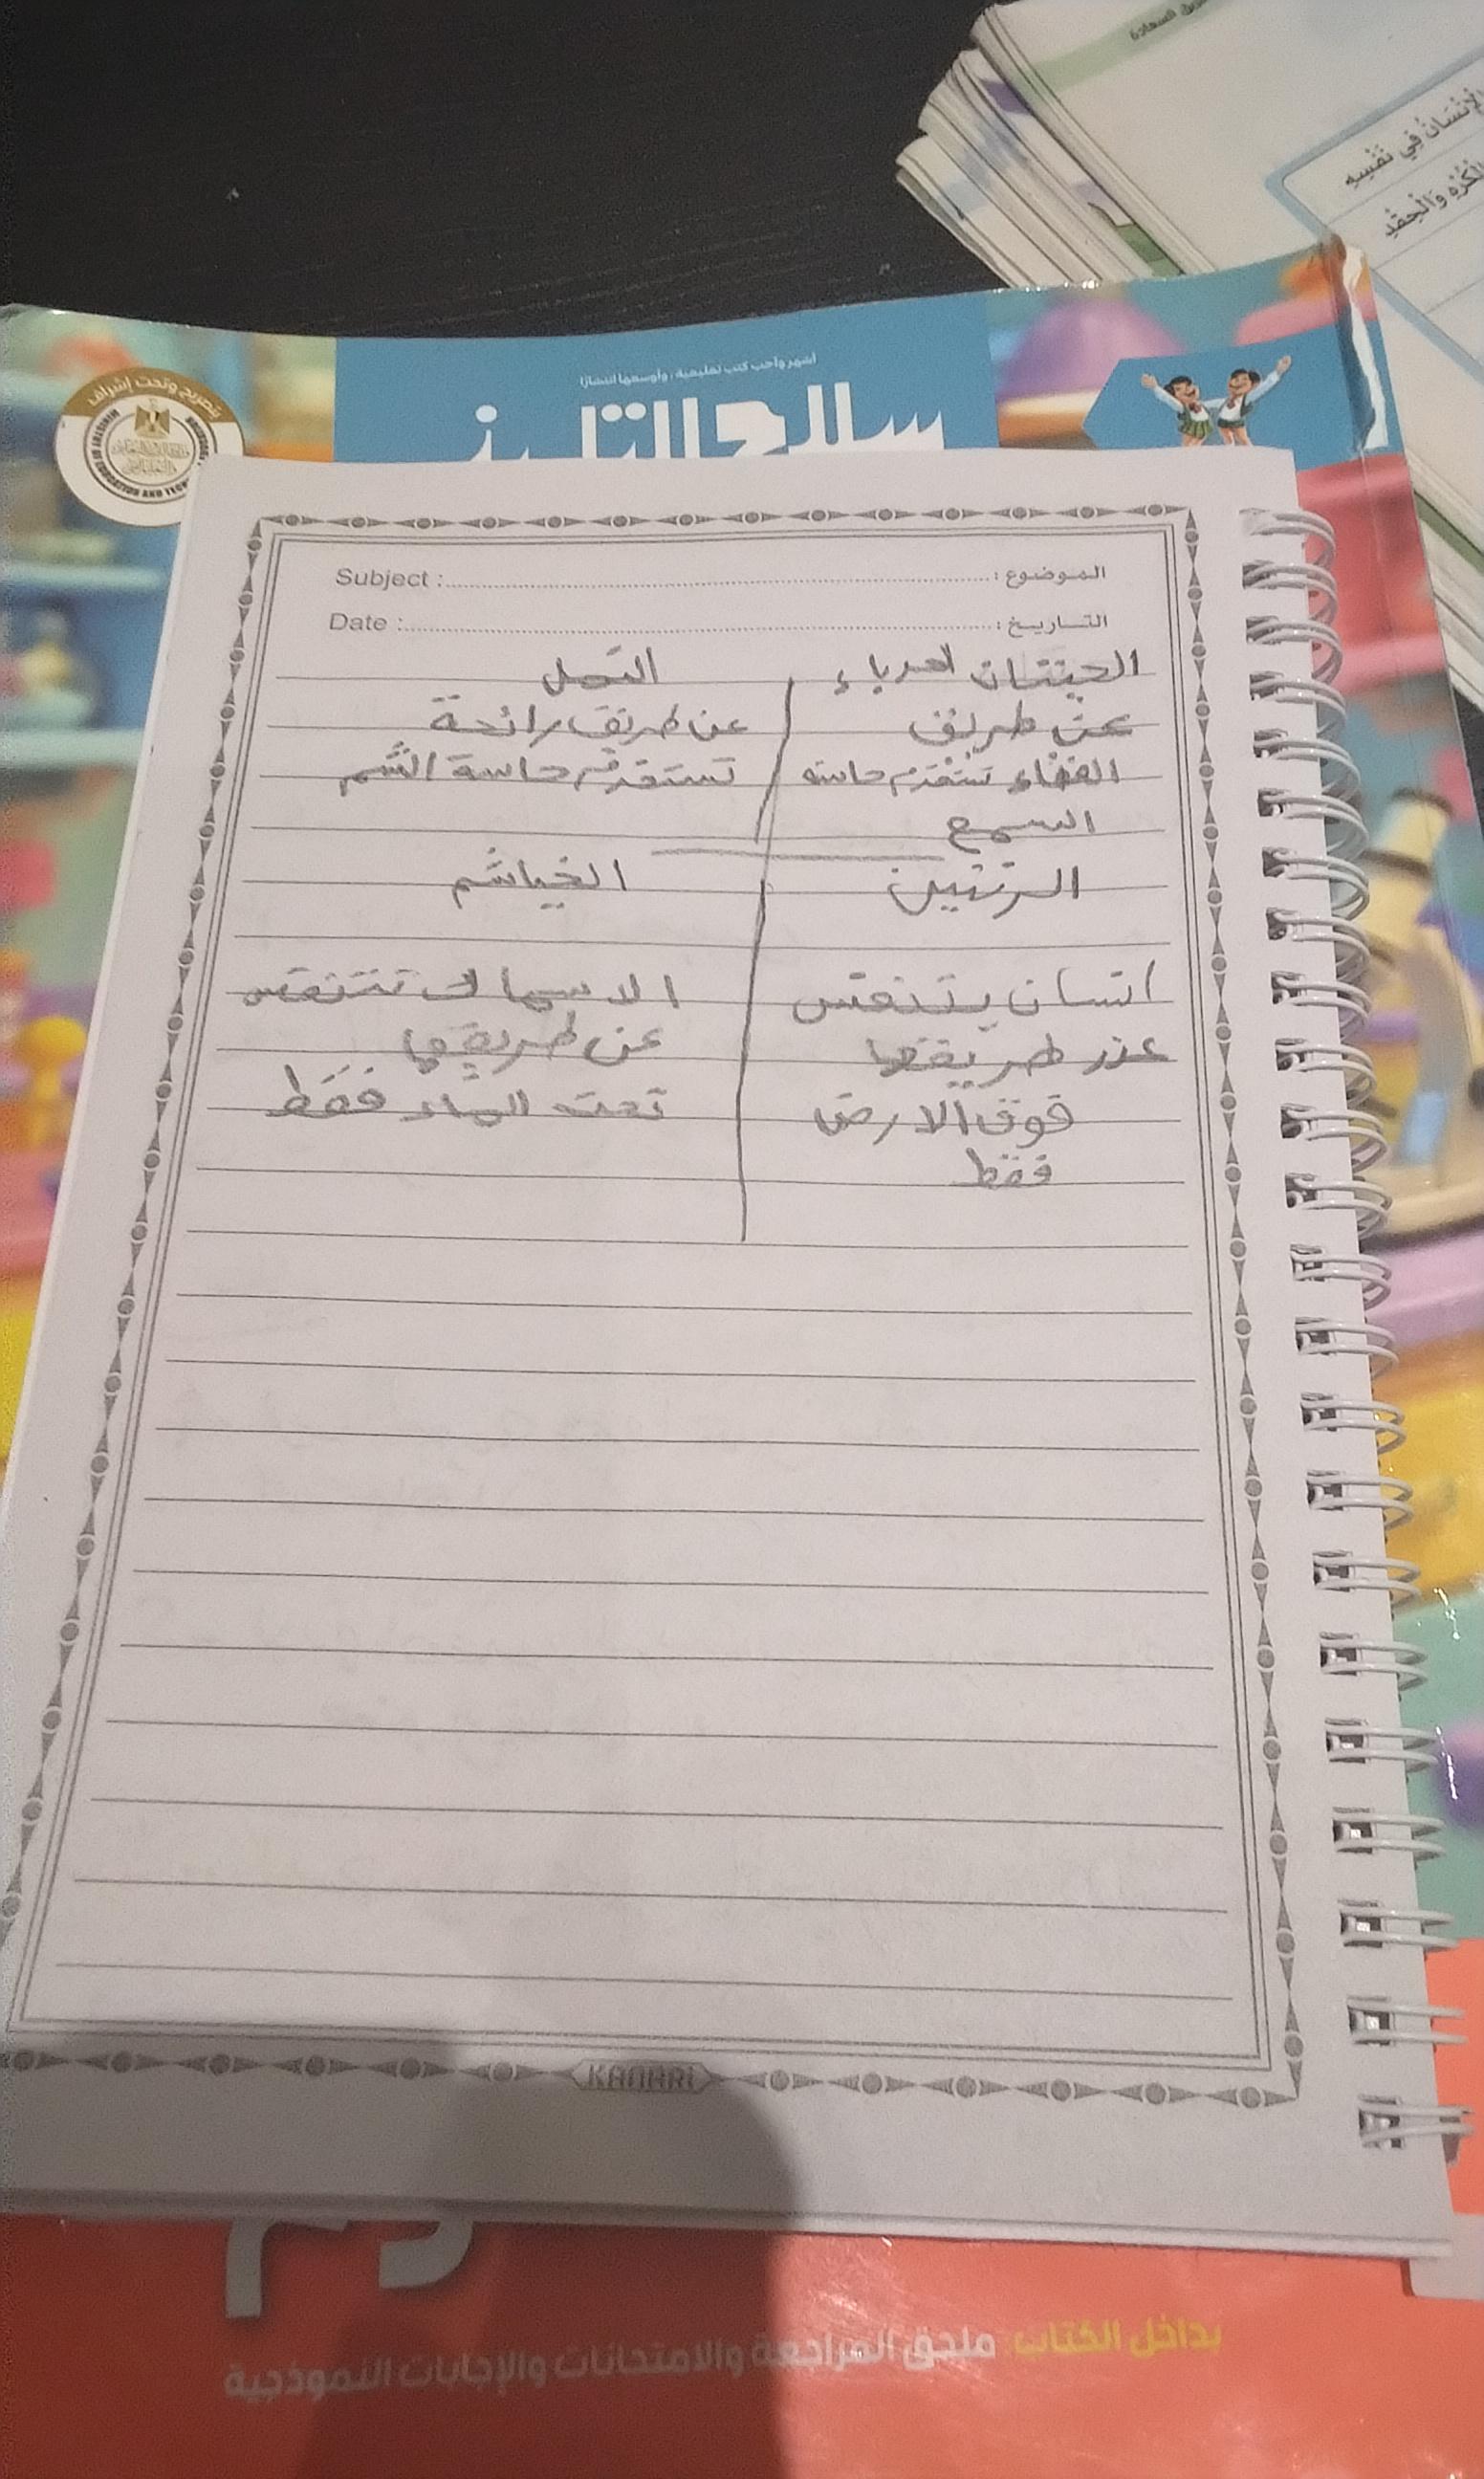 الإنسان في نفسه
الكره والحقد
أشهر وأحب كتب تعليمية، وأوسعها انتشارًا
سلاح التلميذ
بتصريح وتحت إشراف
الموضوع : Subject :
التاريخ : Date :
النمل
عن طريق
عن طريق رائحة
تستخدم حاسه
تستخدم حاسة الشم
السمع
الرئتين
الخياشم
انسان يتنفس
الاسماك تتنفس
عن طريقها
عن طريقها
فوق الارض
تحت الماء فقط
فقط
KANARI
بداخل الكتاب: ملحق المراجعة والامتحانات والإجابات النموذجية